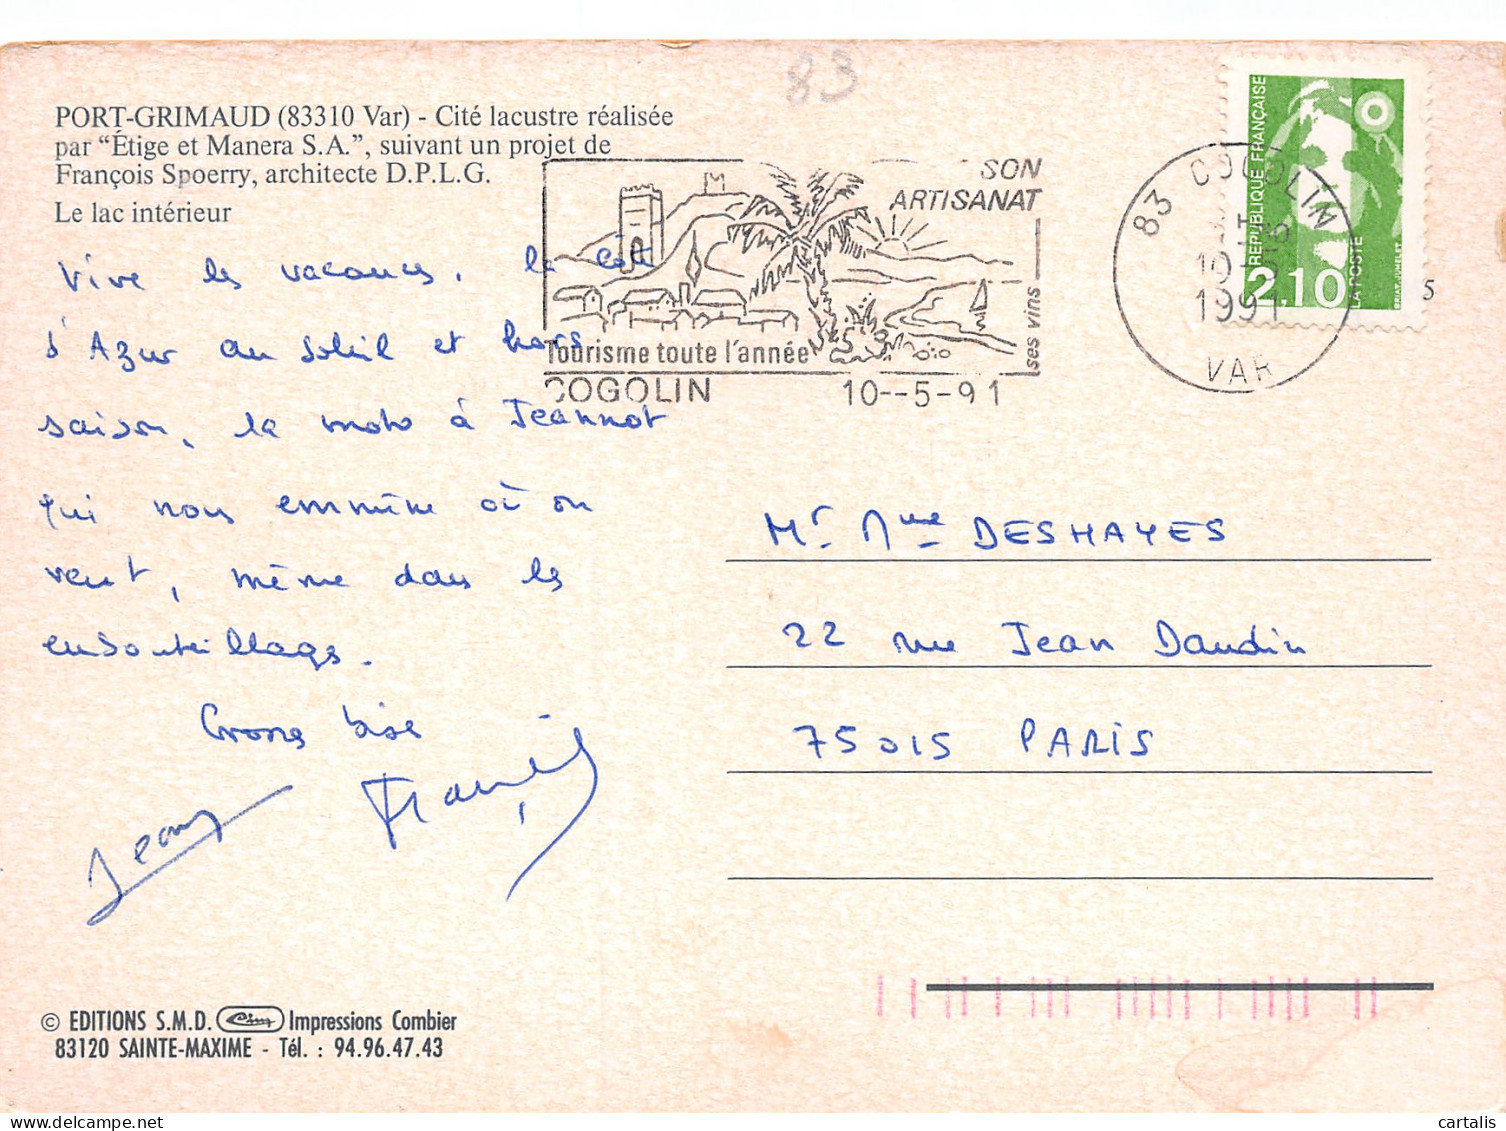 83
PORT-GRIMAUD (83310 Var) - Cité lacustre réalisée
par “Étige et Manera S.A.”, suivant un projet de
François Spoerry, architecte D.P.L.G.
Le lac intérieur
SON
ARTISANAT
ses vins
Tourisme toute l'année
COGOLIN 10--5-91
83 COGOLIN
10-5
1991
VAR
REPUBLIQUE FRANÇAISE
2,10
LA POSTE
BRIAT-JUMELET
5
Vive les vacances, la côte
d'Azur au soleil et hors
saison, la moto à Jeannot
qui nous emmène où on
veut, même dans les
embouteillages.
Grosse bise
Jeany
Mr Mme DESHAYES
22 rue Jean Daudin
75015 PARIS
© EDITIONS S.M.D. Cim Impressions Combier
83120 SAINTE-MAXIME - Tél. : 94.96.47.43
cartalis
delcampe.net